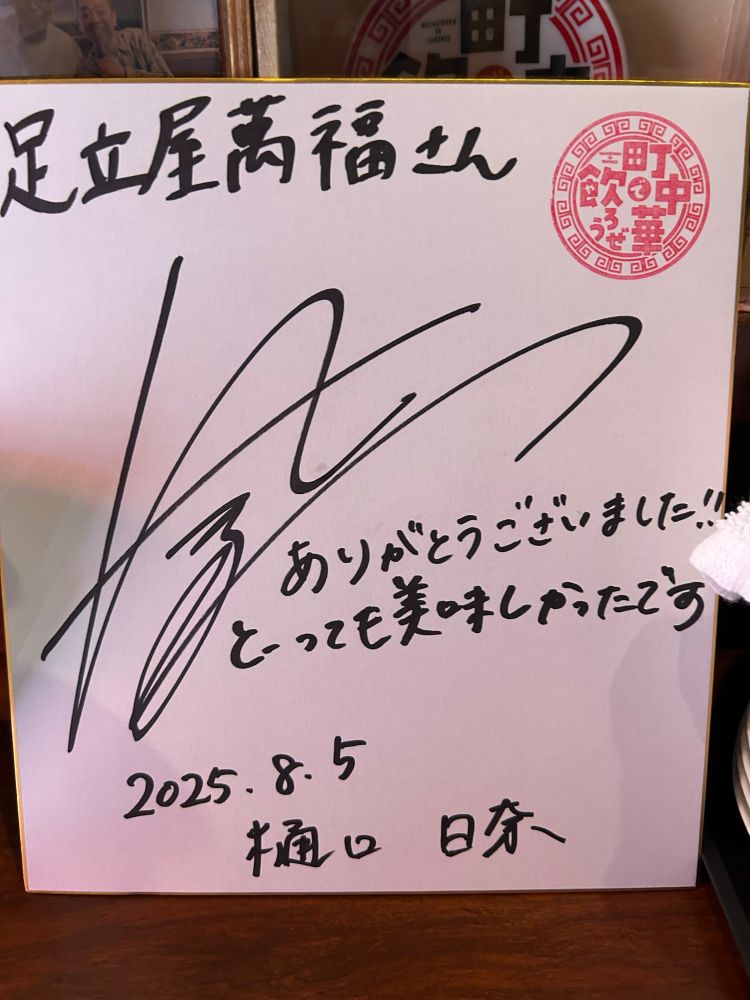 足立屋萬福さん
町中華
で
飲ろうぜ
ありがとうございました!!
とーっても美味しかったです
2025.8.5
樋口 日奈